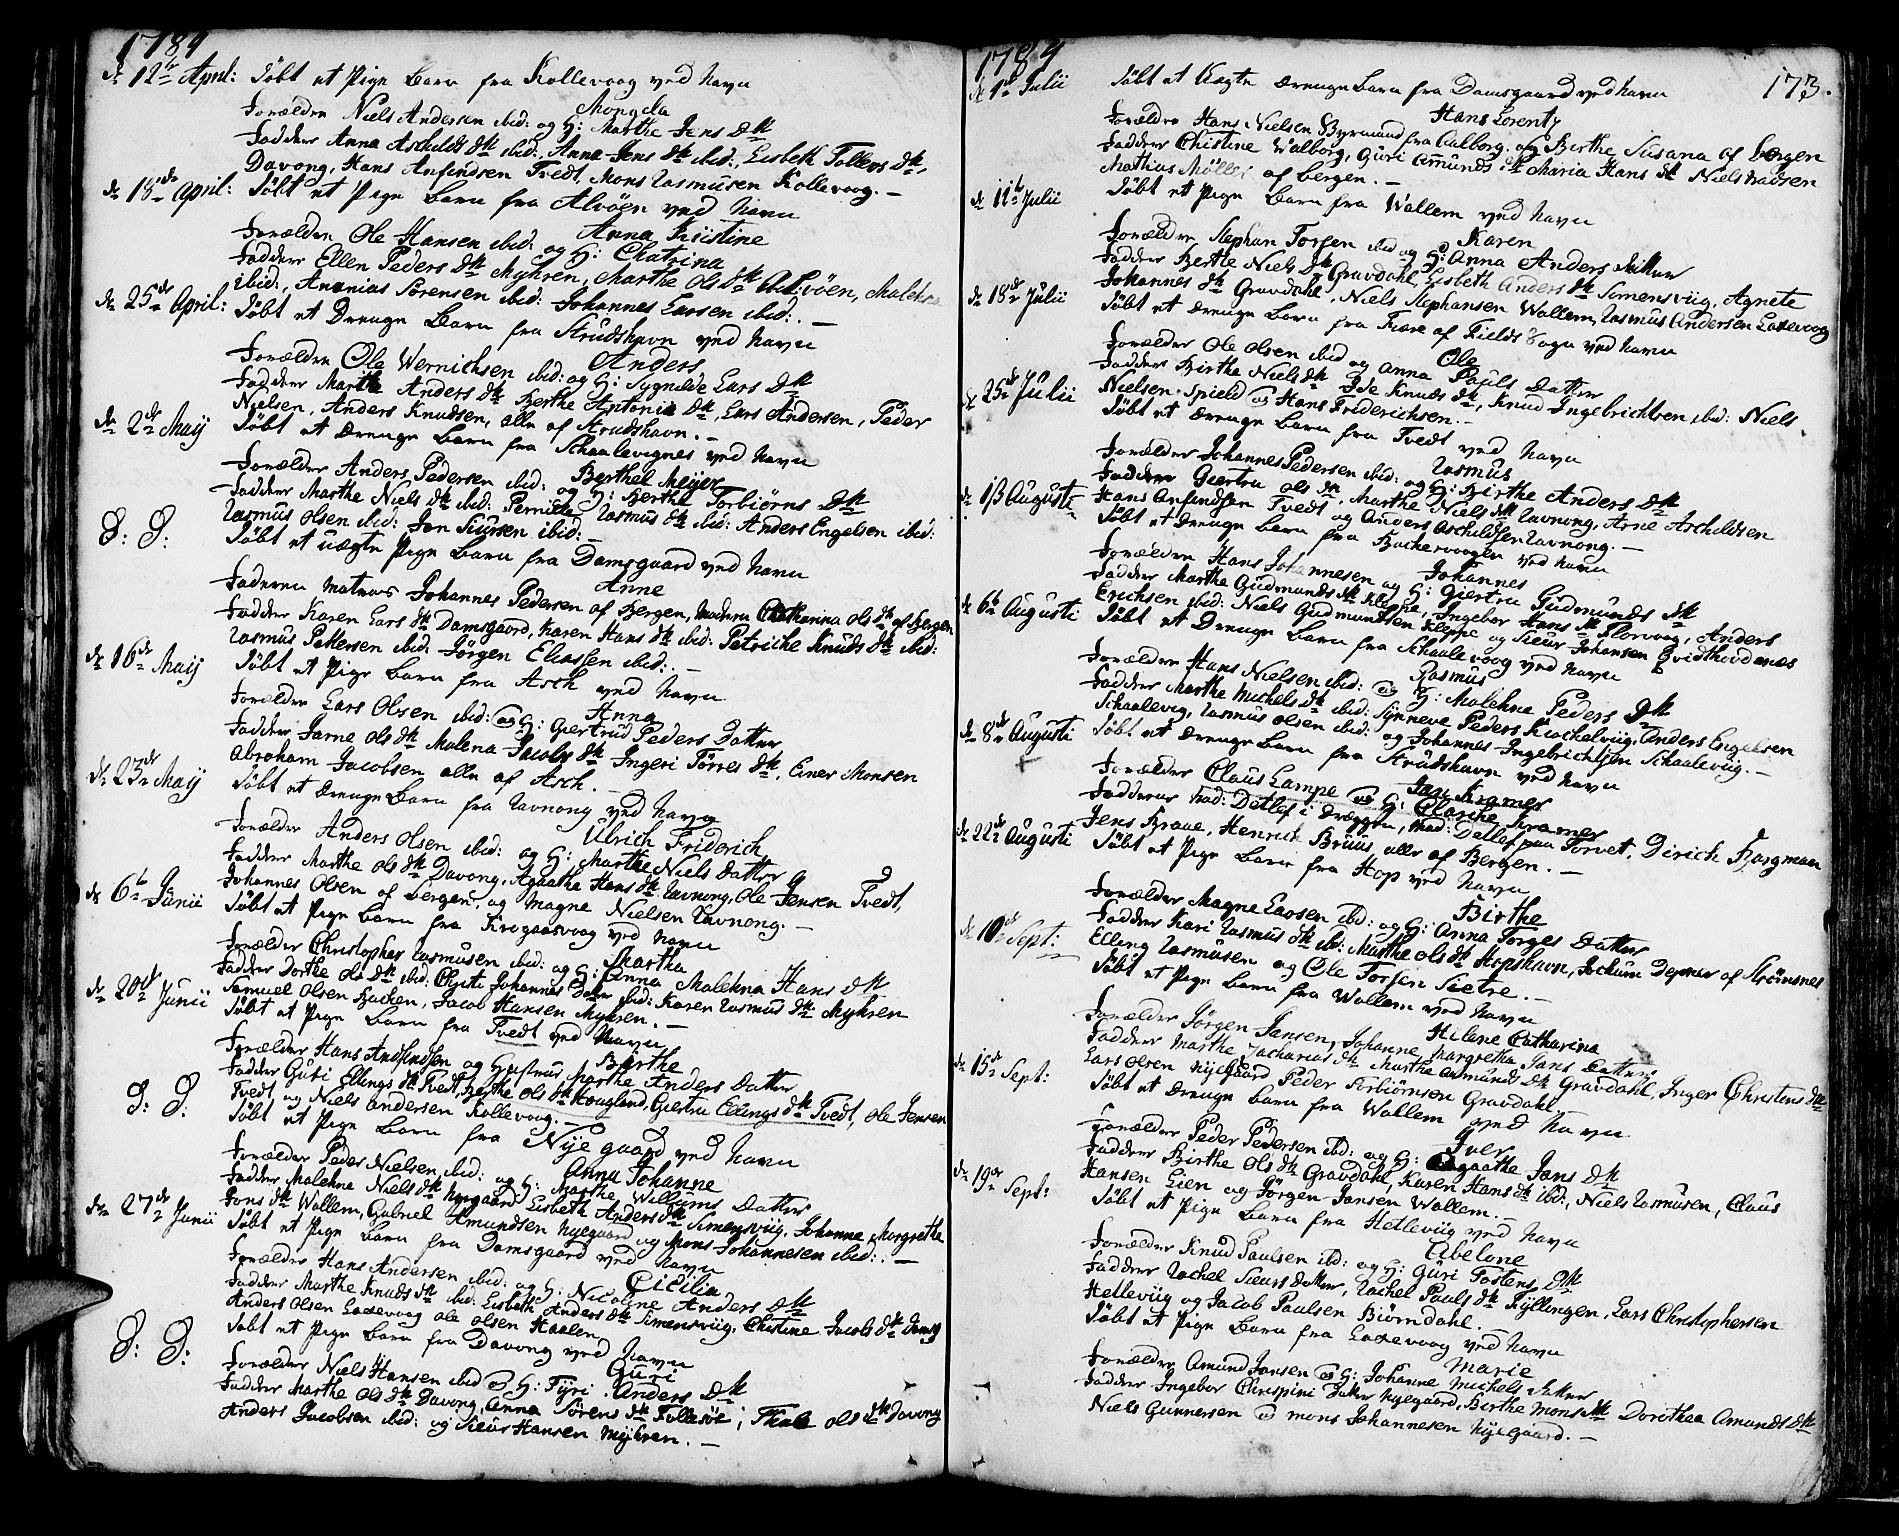 1784
d. 12te April: Döbt et Pige Barn fra Kollevoog ved Navn
Mongela
Forældre Niels Andersen ibid: og H: Marthe Jens Dtr
Fadder Anna Aschilds dtr ibid: Anna Jens dtr ibid:, Lisbeth Tollevs dtr,
Davong, Hans Anfindsen Tvedt, Mons Rasmusen Kollevoog. —
d. 18de April: Döbt et Pige Barn fra Alvöen ved Navn
Anna Kristine
Forældre Ole Hansen ibid: og H: Chatrina
Fadder Ellen Peders dtr Myhren, Marthe Ols dtr Alvöen, Malehna
ibid:, Ananias Sörensen ibid: Johannes Larsen ibid:. —
d. 25de April: Döbt et Drenge Barn fra Strudshavn ved Navn
Anders
Forældre Ole Wernichsen ibid: og H: Sygnilde Lars Dtr
Fadder Marthe Anders dtr Berthe Antonia dtr, Lars Andersen, Peder
Nielsen, Anders Knudsen, alle af Strudshavn. —
d. 2de Maij Döbt et Drenge Barn fra Schaalevignes ved Navn
Berthel Meijer
Forælder Anders Pedersen ibid: og H: Berthe Torbiörns Dtr
Fadder Marthe Niels dtr ibid: Pernille Rasmus dtr ibid: Anders Engelsen ibid:
Rasmus Olsen ibid: Jon Siursen ibid: —
D: D: Döbt et uægte Pige Barn fra Damsgaard ved Navn
Anne
Faderen Matros Johannes Pedersen af Bergen, Modern Cathanna Ols dtr af Bergen
Fadder Karen Lars dtr Damsgaard, Karen Hans dtr ibid: Petriche Knuds dtr ibid:
Rasmus Pettersen ibid: Jörgen Eliassen ibid:. —
d. 16de Maij Döbt et Pige Barn fra Asch ved Navn
Anna
Forældre Lars Olsen ibid: og H: Giertrud Peders Datter
Fadder Jarne Ols dtr Malena Jacobs dtr Ingeri Törres dtr, Einer Monsen
Abraham Jacobsen, alle af Asch. —
d. 23de Maij Döbt et Drenge Barn fra Ravnong ved Navn
Ulrich Friderich
Forældre Anders Olsen ibid: og H: Marthe Niels Datter
Fadder Marthe Ols dtr Davong, Agaathe Hans dtr Ravnong, Ole Jensen Tvedt,
Johannes Olsen af Bergen, og Magne Nielsen Ravnong. —
d. 6te Junii Döbt et Pige Barn fra Krogaasvoog ved Navn
Martha
Forælder Christopher Rasmusen ibid: og H: Anna Malehna Hans Dtr
Fadder Dorthe Ols dtr ibid: Christi Johannes Datter ibid: Karen Rasmus dtr Myhren
Samuel Olsen Bachen, Jacob Hansen Myhren. —
d. 20de Junii Döbt et Pige Barn fra Tvedt ved Navn
Börthe
Forældre Hans Andfindsen og Hustrue Marthe Anders Datter
Fadder Guri Ellings dtr Tvedt, Börthe Ols dtr Hougland, Giertru Ellings dtr Tvedt, Ole Jensen
Tvedt, og Niels Andersen Kollevoog. —
D: D: Döbt et Pige Barn fra Nyegaard ved Navn
Anna Johanne
Forælder Peder Nielsen ibid: og H: Marthe Willums Datter
Fadder Malehne Niels dtr Nyegaard Lisbeth Anders dtr Simensviig, Johanne Margrethe
Jons dtr Wollem, Gabriel Amundsen Nyegaard og Mons Johannesen ibid:. —
d. 27de Junii Döbt et Pige Barn fra Damsgaard ved Navn
Cicilia
Forældre Hans Andersen ibid: og H: Nicoline Anders Dtr
Fadder Marthe Knuds dtr ibid: Lisbeth Anders dtr Simensviig, Christine Jacobs dtr
Anders Olsen Laxevoog Ole Olsen Haalen
D: D: Döbt et Pige Barn fra Davong ved Navn
Guri
Forælder Niels Hansen ibid og H: Fyri Anders Dtr
Fadder Marthe Ols dtr Davong, Anna Sörens dtr Follesöe, Thale Ols dtr Davong
Anders Jacobsen ibid: og Siur Hansen Myhren. —
1784 173.
d. 4de Julii Döbt et Ægte Drenge Barn fra Damsgaard ved Navn
Hans Lorentz
Forælder Hans Nielsen Byrmand fra Aalborg, og Birthe Susana af Bergen
Fadder Christine Walborg, Guri Amunds dtr Maria Hans dtr Niels Madsen
Mathias Möller af Bergen. —
d. 11te Julii Döbt et Pige Barn fra Wallem ved Navn
Karen
Forælder Stephan Torsen ibid og H: Anna Anders Datter
Fadder Berthe Niels dtr Gravdahl, Lisbeth Anders dtr Simensviig, Agnete
Johannes dtr Gravdahl, Niels Stephansen Wallem, Rasmus Andersen Laxevoog
d. 18de Julii Döbt et Drenge Barn fra Kiære af Fields Sogn ved Navn
Ole
Forælder Ole Olsen ibid og Anna Pouls Datter
Fadder Birthe Niels dtr Ide Knuds dtr, Knud Ingebrichtsen ibid: Niels
Nielsen Spield og Hans Friderichsen. —
d. 25de Julii Döbt et Drenge Barn fra Tvedt ved Navn
Rasmus
Forælder Johannes Pedersen ibid: og H: Birthe Anders Dtr
Fadder Giertru Ols dtr, Marthe Niels dtr Ravnong, Arne Aschildsen
Hans Anfindsen Tvedt og Anders Aschildsen Ravnong. —
d. 1ste Augusti Döbt et Drenge Barn fra Bachervoogen ved Navn
Johannes
Forælder Hans Johannesen og H: Giertru Gudmunds dtr
Fadder Marthe Gudmunds dtr Kleppe, Ingebor Hans dtr Florvoog, Anders
Erichsen ibid: Niels Gudmundsen Kleppe og Sieur Johansen Qvidthovdenæs
d. 6te Augusti Döbt et Drenge Barn fra Schaalevoog ved Navn
Rasmus
Forælder Hans Nielsen ibid: og H: Malehne Peders Dtr
Fadder Marthe Michels dtr ibid: Synneve Peders Kuchelviig, Anders Engelsen
Schaaleviig, Rasmus Olsen ibid: og Johannes Ingebrichtsen Schaaleviig. —
d. 8de Augusti Döbt et Drenge Barn fra Strudshavn ved Navn
Jan Kramer
Forælder Claus Lampe og H: Clarche Kramer
Fadderne Mad: Detlef i Dræggen, Mad: Detlef paa Torvet, Dirich Bargman
Jens Krave, Henrich Bruus alle af Bergen. —
d. 22de Augusti Döbt et Pige Barn fra Hop ved Navn
Birthe
Forælder Magne Larsen ibd: og H: Anna Torges Datter
Fadder Kari Rasmus dtr ibd: Marthe Ols dtr Hopshavn, Jochum Depner af Strömsnes
Elling Rasmusen og Ole Torsen Sietre. —
d. 10de Sept: Döbt et Pige Barn fra Wollem ved Navn
Helene Catharina
Forælder Jörgen Jansen, Johanne Margretha Jans Datter
Fadder Marthe Zacharias dtr Marthe Asmunds dtr Gravdahl, Inger Christens dtr
Lars Olsen Nyegaard Peder Torbiörnsen Gravdahl,
d. 15de Sept: Döbt et Drenge Barn fra Wallem ved Navn
Iver
Forælder Peder Pedersen ibd: og H: Agaathe Jans Dtr
Fadder Birthe Ols dtr Gravdahl, Karen Hans dtr ibid:, Niels Rasmusen, Claus
Hansen Lien og Jörgen Jansen Wollem. —
d. 19de Sept: Döbt et Pige Barn fra Hetleviig ved Navn
Abelone
Forælder Knud Paulsen ibd: og H: Guri Tostens Dtr
Fadder Rachel Sieurs Datter, Rachel Pauls dtr Kyllingen, Lars Christophersen
Hetleviig og Jacob Paulsen Biörndahl. —
Döbt et Pige Barn fra Laxevoog ved Navn
Marie
Forælder Amund Jansen og H: Johanne Michels Datter
Fadder Ingebor Chrispini Datter Nyegaard, Birthe Mons dtr Dorothea Amunds dtr
Niels Gunnersen og Mons Johannesen Nyegaard. —